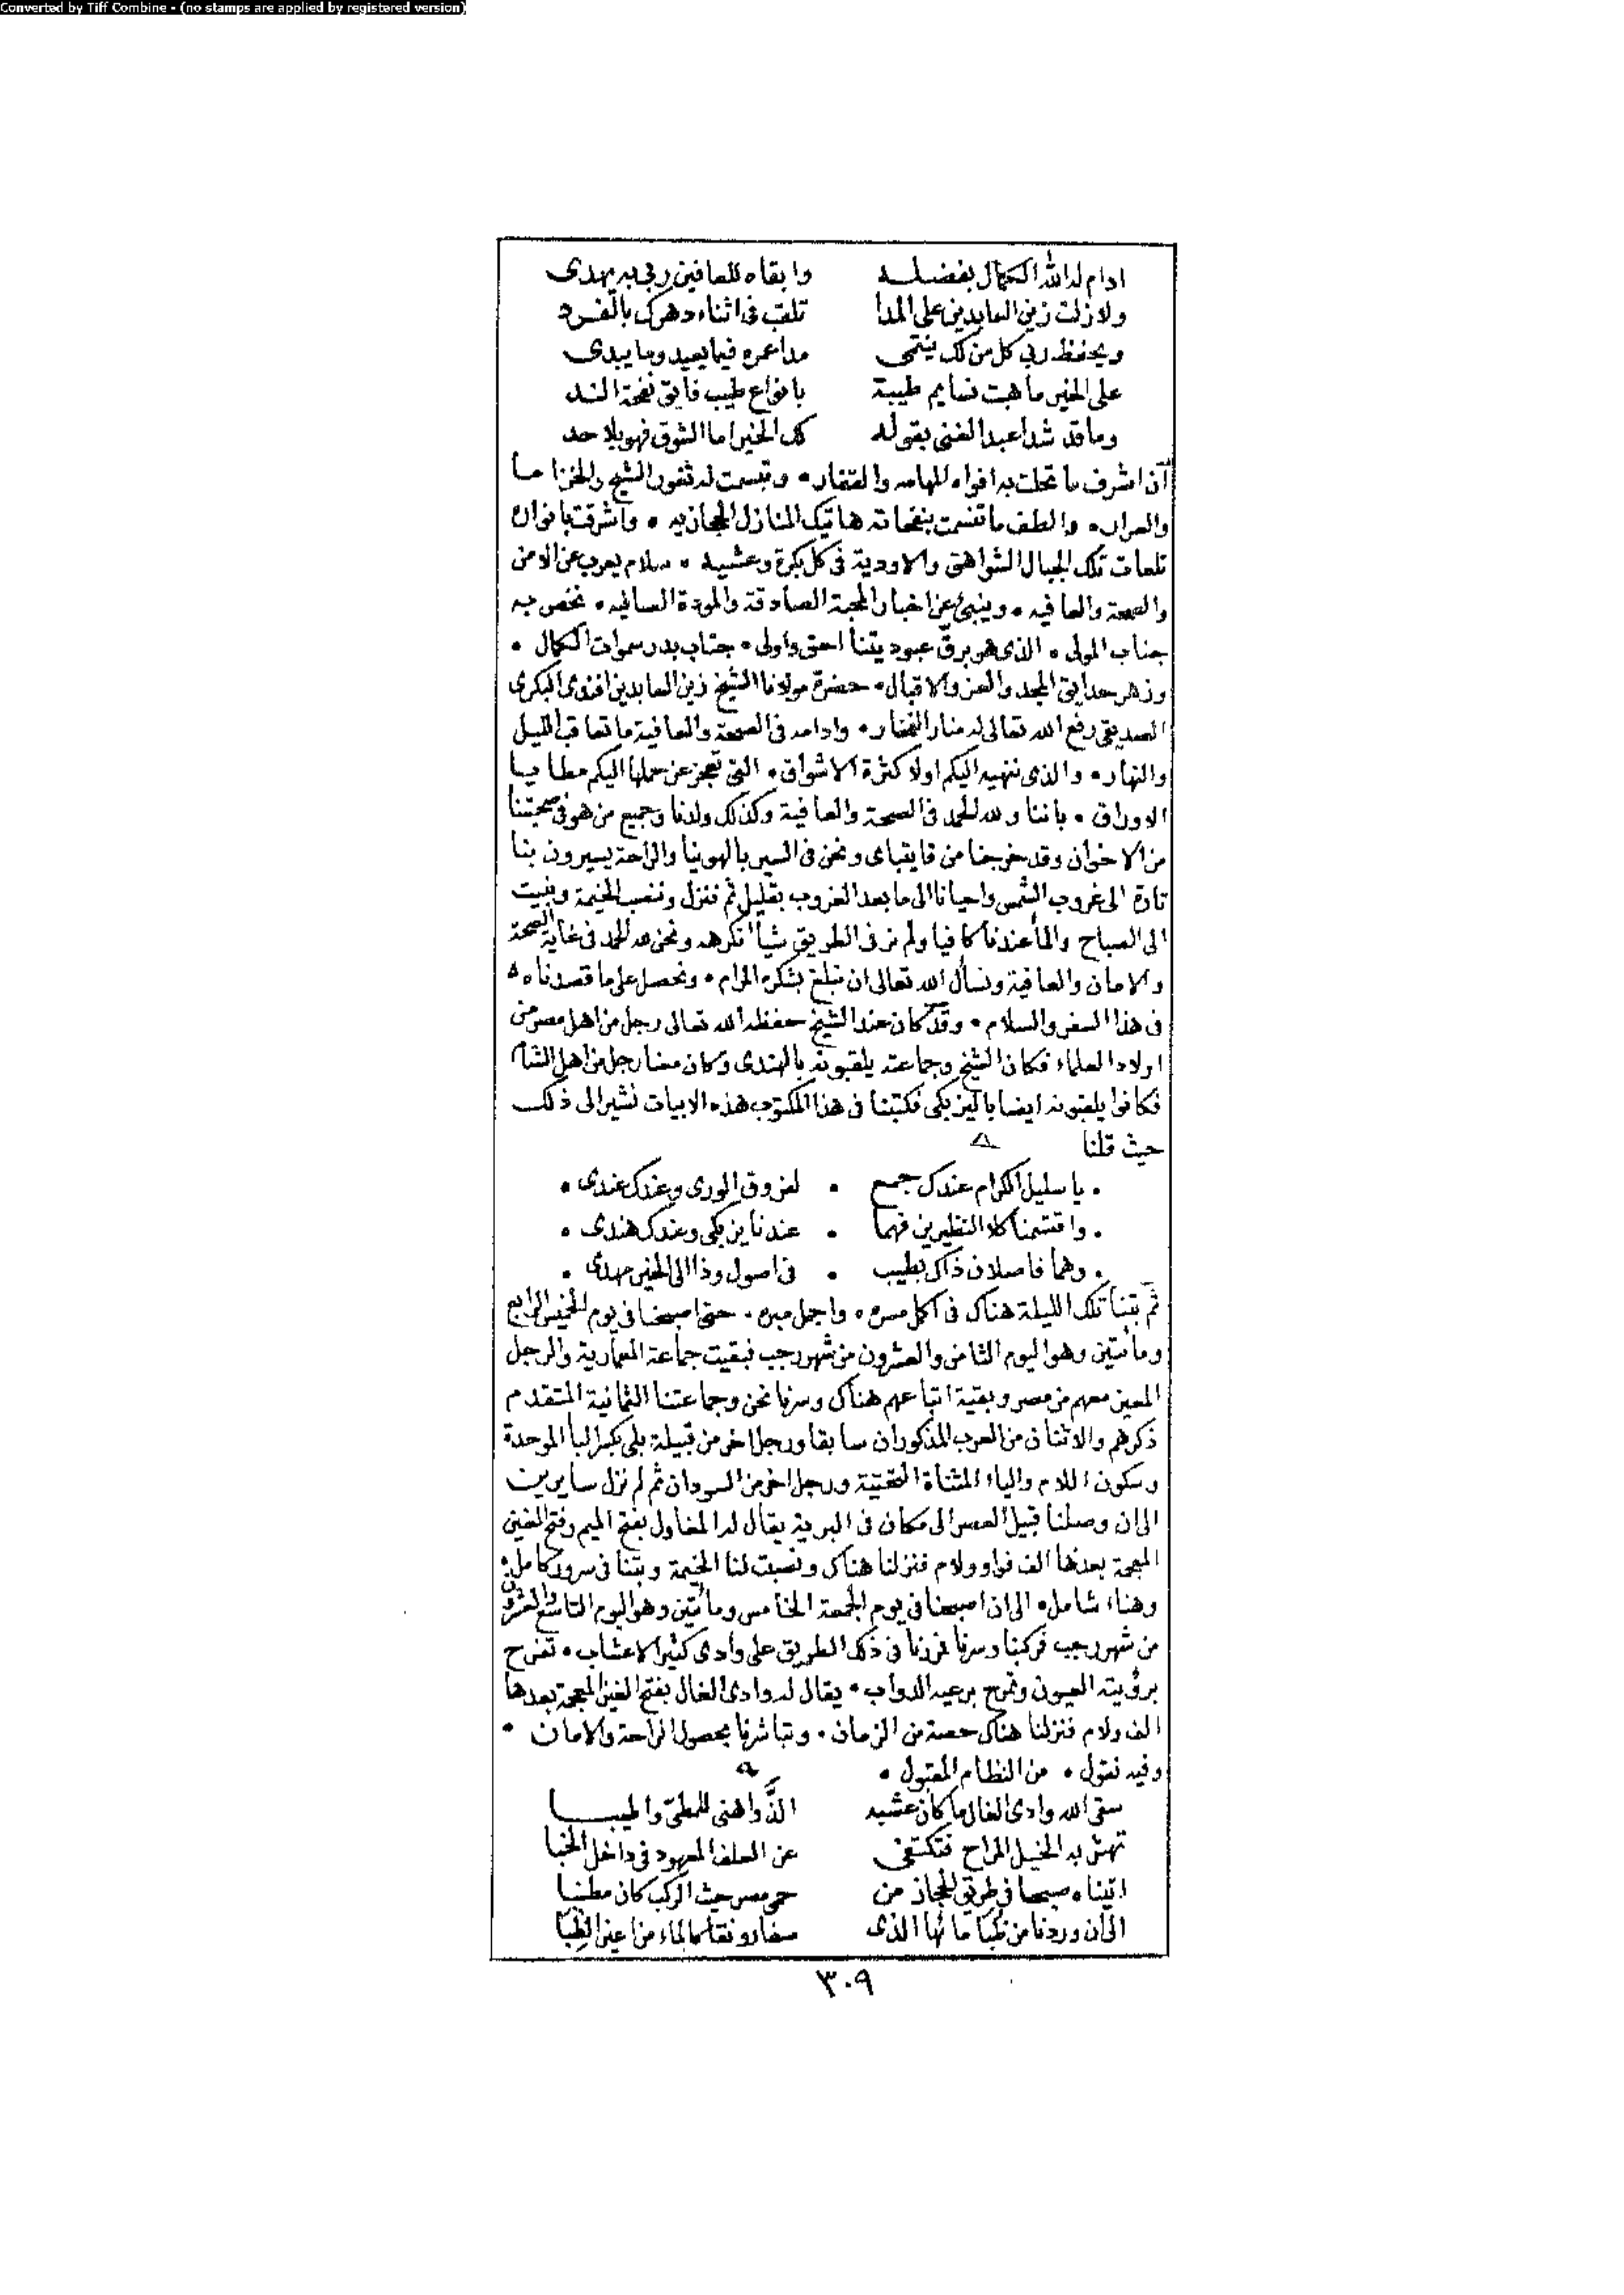 Converted by Tiff Combine - (no stamps are applied by registered version)
ادام له الله الكمال بفضله وابقاه للعافين ربي به يهدى
ولا زلت زين العابدين على المدا تلقب فى اثناء دهرك بالفرد
ويحفظ ربي كل من لك ينتمى مدا عمره فيما يعيد وما يبدى
على الخير ما هبت نسايم طيبة بانواع طيب فايق نفحة الند
وما قد شدا عبد الغنى بقوله لك الخير اما الشوق فهو بلا حد
آن اشرف ما تحلت به افواه المهامه والقفار • وتبسمت له ثغور الشيح والخزاما
والعرار • والطف ما تنسمت بنفحاته هاتيك المنازل الحجازيه • واشرقت بانواره
تلعات تلك الجبال الشواهق والاودية فى كل بكرة وعشيه • سلام يعرب عن الامن
والصحة والعافيه • وينبئ عن اخبار المحبة الصادقة والمودة الصافيه • نخص به
جناب المولى • الذى هو برق عبوديتنا احق واولى • جناب بدر سموات الكمال •
وزهر حدايق المجد والعز والاقبال • حضرة مولانا الشيخ زين العابدين افندى البكرى
الصديقى رفع الله تعالى له منار الفخار • وادامه فى الصحة والعافية ما تعاقب الليل
والنهار • والذى ننهيه اليكم اولا كثرة الاشواق • التى تعجز عن حملها اليكم مطايا
الاوراق • باننا ولله الحمد فى الصحة والعافية وكذلك ولدنا وجميع من هو فى صحبتنا
من الاخوان وقد خرجنا من قايتباى ونحن فى السير بالهوينا والراحة يسيرون بنا
تارة الى غروب الشمس واحيانا الى ما بعد الغروب بقليل ثم ننزل وننصب الخيمة ونبيت
الى الصباح والمأ عندنا كافيا ولم نر فى الطريق شيأ نكرهه ونحن لله الحمد فى غاية الصحة
والامان والعافية ونسأل الله تعالى ان نبلغ بشكره المرام • ونحصل على ما قصدناه
فى هذا السفر والسلام • وقد كان عند الشيخ حفظه الله تعالى رجل من اهل مصر من
اولاد العلماء فكان الشيخ وجماعته يلقبونه بالهندى وكان معنا رجل من اهل الشام
فكانوا يلقبونه ايضا باليزبكى فكتبنا فى هذا المكتوب هذه الابيات نشير الى ذلك
حيث قلنا
• يا سليل الكرام عندك جمع • لفروق الورى وعندك عندى •
• واقتسمنا كلا النظيرين فهما • عندنا يزبكى وعندك هندى •
• وهما فاصلان ذاك بطيب • فى اصول وذا الى الخير مهدى •
ثم بتنا تلك الليلة هناك فى اكمل مسره • واجمل مبره • حتى اصبحنا فى يوم الخميس الرابع
ومائتين وهو اليوم الثامن والعشرون من شهر رجب فبقيت جماعة المعمارية والرجل
المعين معهم من مصر وبقية اتباعهم هناك وسرنا نحن وجماعتنا الثمانية المتقدم
ذكرهم والاثنان من العرب المذكوران سابقا ورجل اخر من قبيلة بلى بكسر البأ الموحدة
وسكون اللام والياء المثناة التحتية ورجل اخر من السودان ثم لم نزل سايرين
الى ان وصلنا قبيل العصر الى مكان فى البرية يقال له المغاول بفتح الميم وفتح الغين
المعجمة بعدها الف فواو ولام فنزلنا هناك ونصبت لنا الخيمة وبتنا فى سرور كامل •
وهناء شامل • الى ان اصبحنا فى يوم الجمعة الخامس ومائتين وهو اليوم التاسع والعشرون
من شهر رجب فركبنا وسرنا فمررنا فى ذلك الطريق على وادى كثير الاعشاب • تفرح
برؤيته العيون وتمرح برعيه الدواب • يقال له وادى الغال بفتح الغين المعجمة بعدها
الف ولام فنزلنا هناك حصة من الزمان • وتباشرنا بحصول الراحة والامان •
وفيه نقول • من النظام المقبول •
سقى الله وادى الغال ما كان عشبه الذ واهنى للمطى واطيبا
تهش به الخيل المراح فتكتفى عن العلف المعهود فى داخل الخبا
اتيناه صبحا فى طريق الحجاز من حمى مصر حيث الركب كان مطنبا
الى ان وردنا من ظبا مائها الذى صفا رونقا كالماء من اعين الظبا
٣٠٩